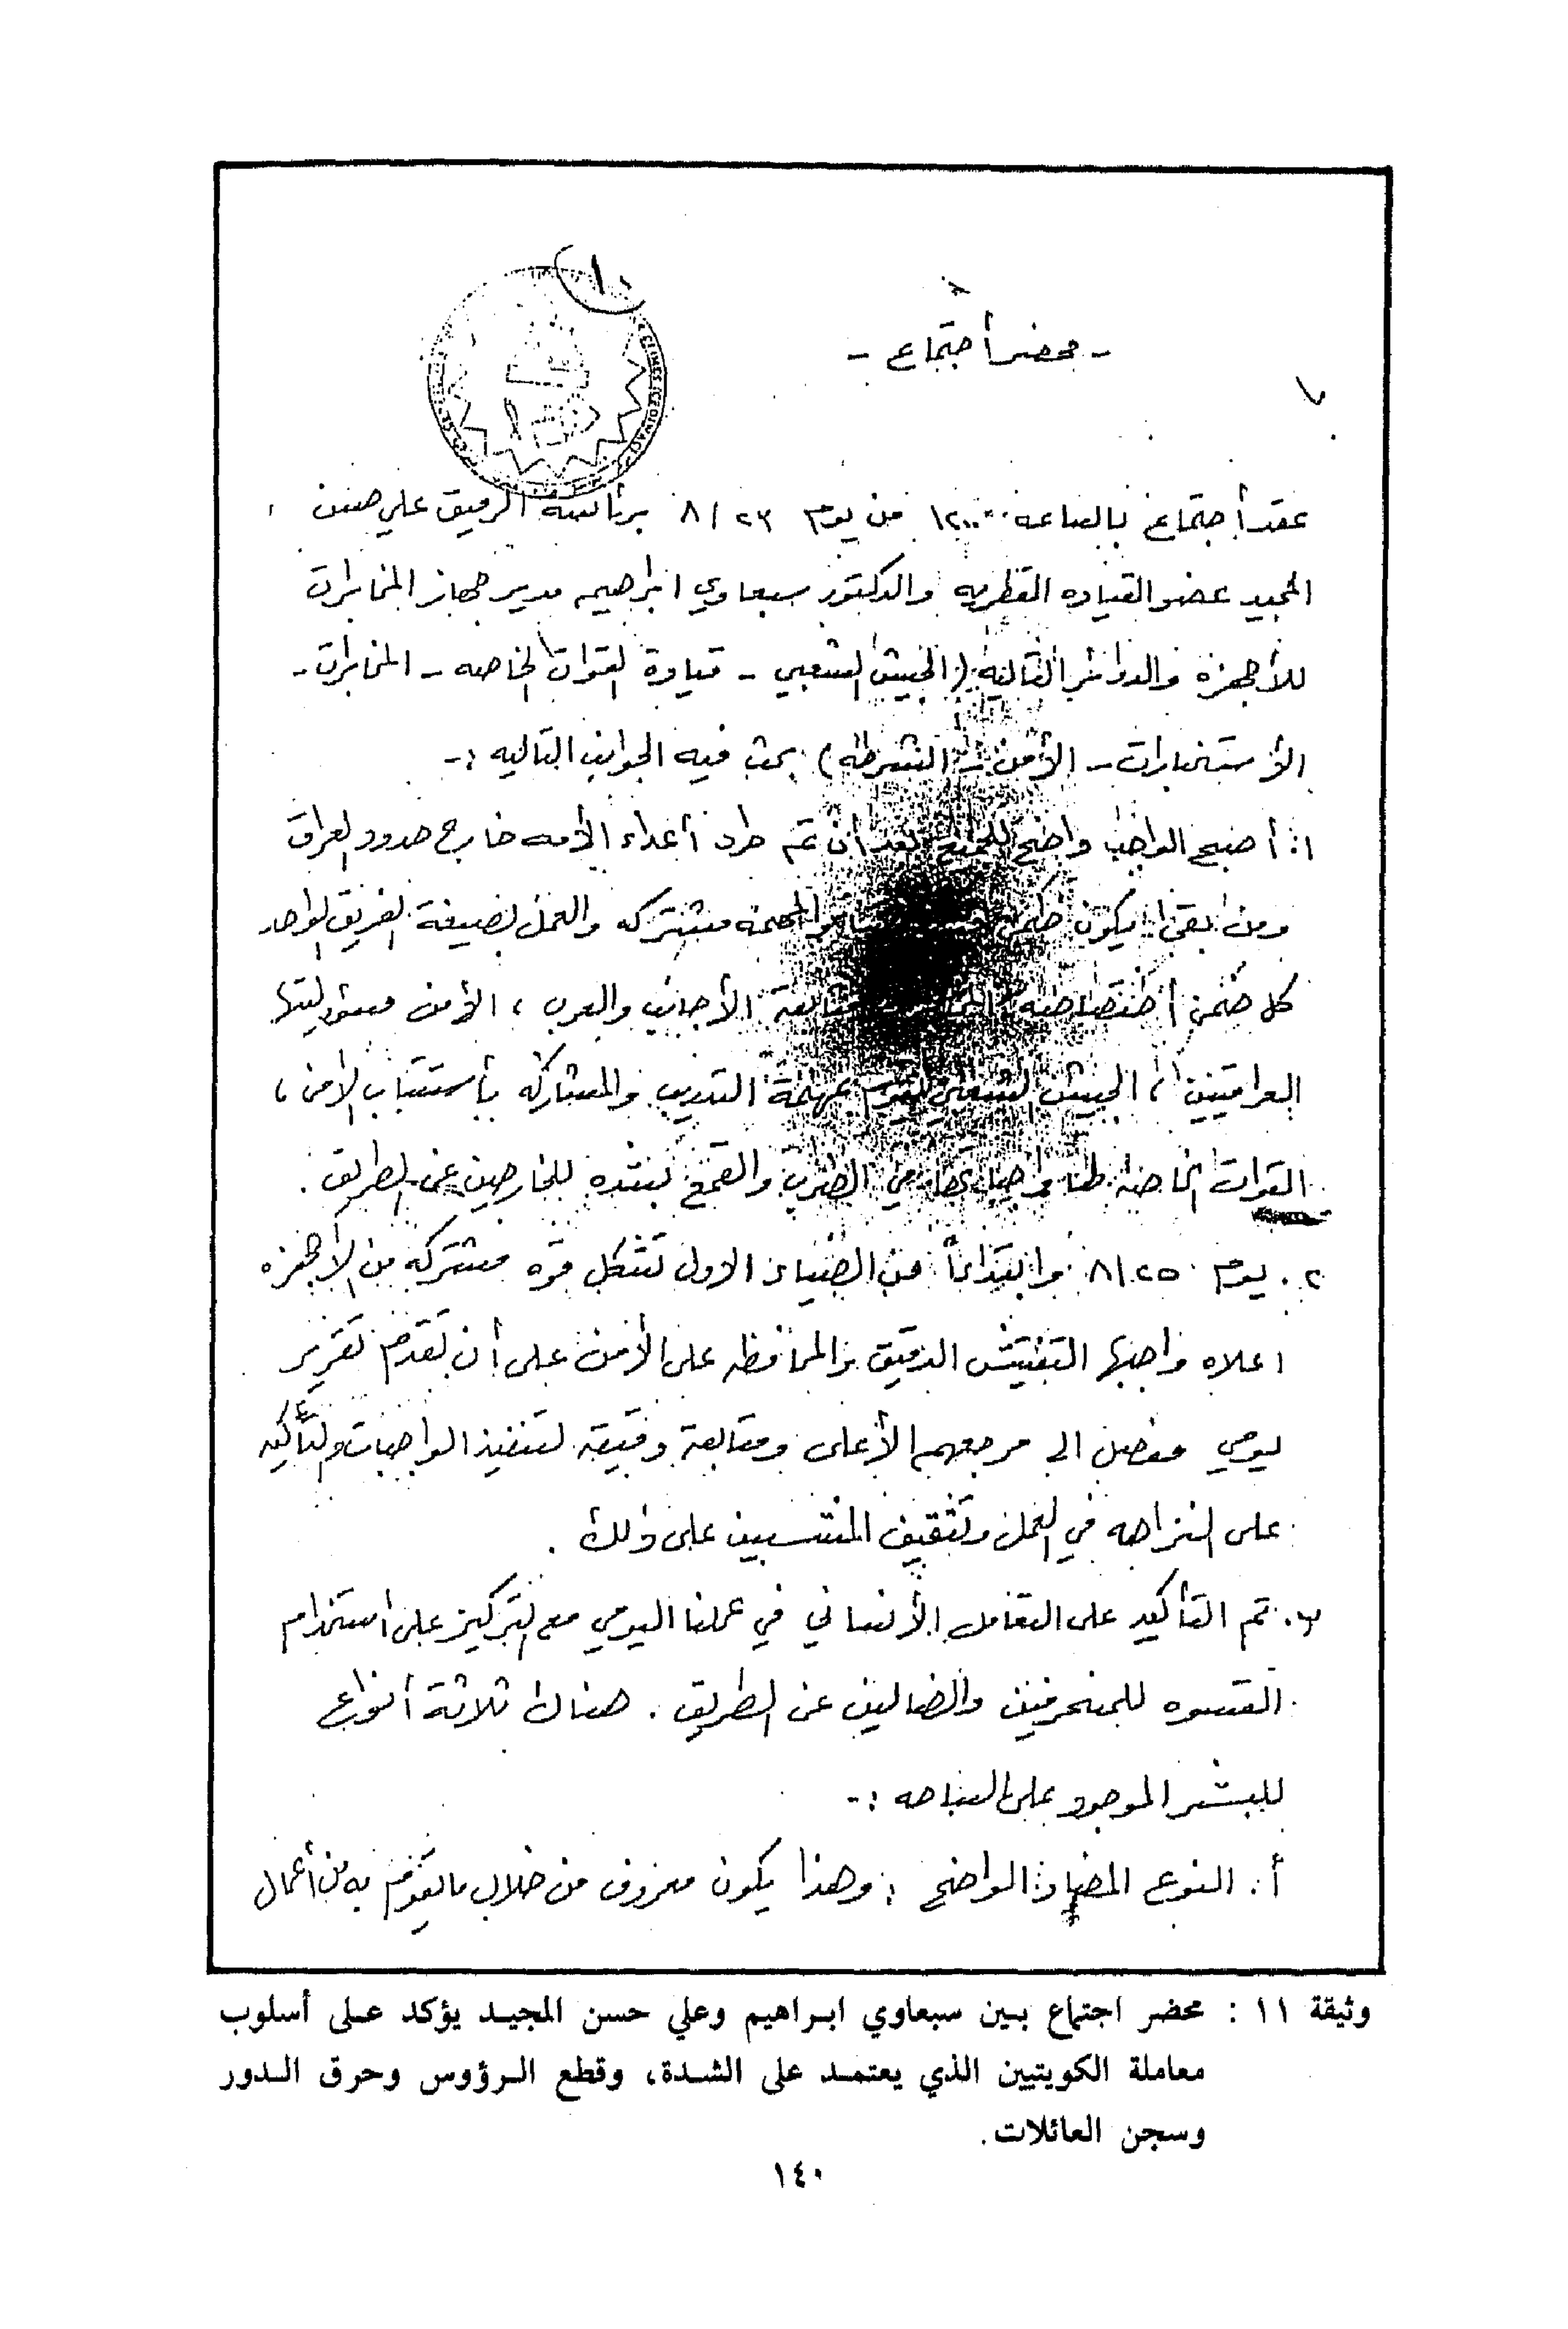 - محضر أجتماع -
عقد أجتماع بالساعه ١٢٠٠ من يوم ٨/٢٣ برئاسة الرفيق علي حسن
المجيد عضو القياده القطريه والدكتور سبعاوي ابراهيم مدير جهاز المخابرات
للأجهزه والدوائر التاليه (الجيش الشعبي - قيادة القوات الخاصه - المخابرات -
الأستخبارات - الأمن - الشرطه) بحث فيه الجوانب التاليه :-
١. أصبح الواجب واضح للجميع بعد أن تم طرد أعداء الأمه خارج حدود العراق
ومن بقى يكون ضمن والمهمه مشتركه والعمل بصيغة الفريق الواحد
كل ضمن أختصاصه متابعة الأجانب والعرب ، الأمن مسؤوليتها
العراقيين ، الجيش الشعبي يقوم بمهمة التدريب والمشاركه بأستتباب الأمن ،
القوات الخاصه لها واجباتها في الضرب والقمع بشده للخارجين عن الطريق .
٢. يوم ٨/٢٥ وابتداءً من الضياء الاول تشكل قوه مشتركه من الأجهزه
اعلاه واجبها التفتيش الدقيق والمحافظه على الأمن على أن تقدم تقرير
يومي مفصل الى مرجعهم الأعلى ومتابعة دقيقه لتنفيذ الواجبات والتأكيد
على النزاهه في العمل وتثقيف المنتسبين على ذلك .
٣. تم التأكيد على التعامل الأنساني في عملنا اليومي مع التركيز على استخدام
القسوه للمنحرفين والضالين عن الطريق . هناك ثلاثة أنواع
للبشر الموجود على الساحه :-
أ. النوع المضاد الواضح : وهذا يكون معروف من خلال مايقوم به من أعمال
وثيقة ١١ : محضر اجتماع بين سبعاوي ابراهيم وعلي حسن المجيد يؤكد على أسلوب
معاملة الكويتيين الذي يعتمد على الشدة، وقطع الرؤوس وحرق الدور
وسجن العائلات.
١٤٠